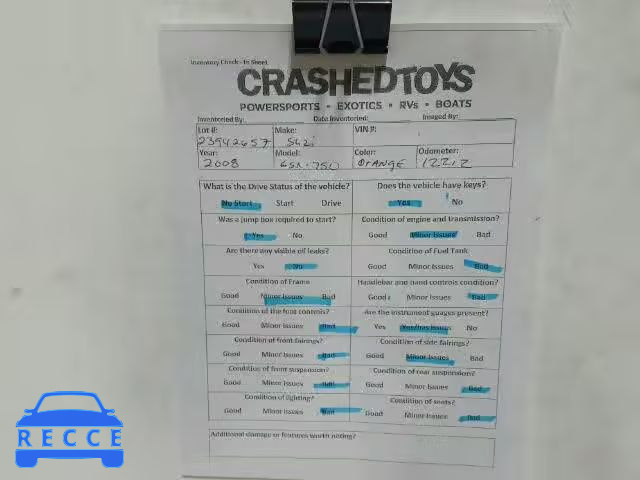 Inventory Check - In Sheet
CRASHEDTOYS
POWERSPORTS • EXOTICS • RVs • BOATS
Inventoried By: Date Inventoried: Imaged By:
Lot #: Make: VIN #:
23942657 SUZI
Year: Model: Color: Odometer:
2008 GSX-750 ORANGE 12212
What is the Drive Status of the vehicle? Does the vehicle have keys?
No Start Start Drive Yes No
Was a jump box required to start? Condition of engine and transmission?
Yes No Good Minor Issues Bad
Are there any visible oil leaks? Condition of Fuel Tank
Yes No Good Minor Issues Bad
Condition of Frame Handlebar and hand controls condition?
Good Minor Issues Bad Good Minor Issues Bad
Condition of the foot controls? Are the instrument guages present?
Good Minor Issues Bad Yes Yes/has Issues No
Condition of front fairings? Condition of side fairings?
Good Minor Issues Bad Good Minor Issues Bad
Condition of front suspension? Condition of rear suspension?
Good Minor Issues Bad Good Minor Issues Bad
Condition of lighting? Condition of seats?
Good Minor Issues Bad Good Minor Issues Bad
Additional damage or features worth noting?
RECCE